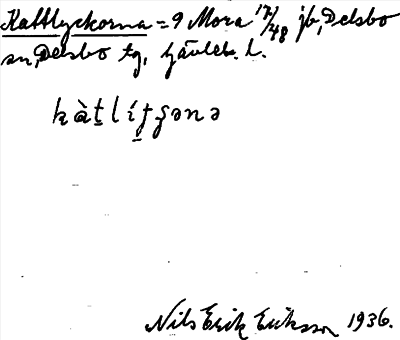 Kattlyckorna = 9 Mora 17/48 jb, Delsbo
sn, Delsbo tg, Gävleb. l.
kàt̠lít̠ʂənə
Nils Erik Eriksson 1936.